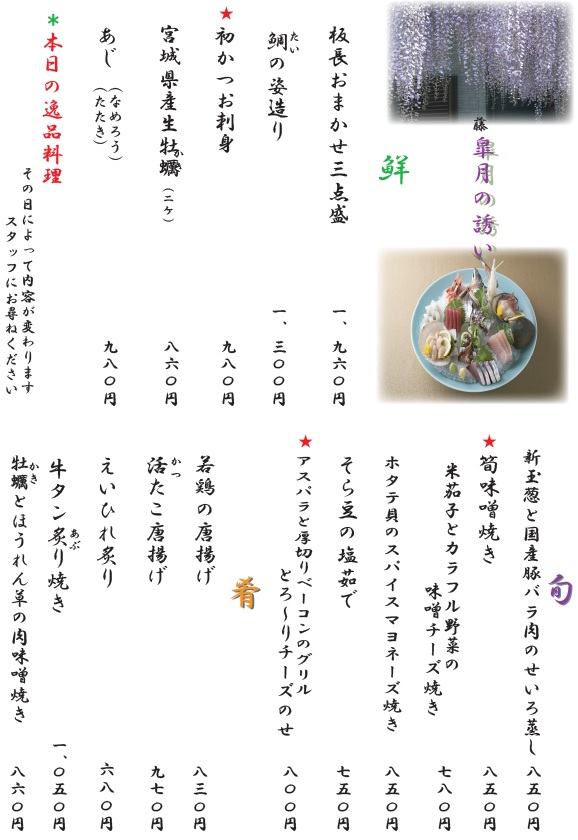 藤 皐月の誘い
鮮
板長おまかせ三点盛 一、九六〇円
鯛の姿造り 一、三〇〇円
たい
★初かつお刺身 九八〇円
宮城県産生牡蠣(二ケ) 八六〇円
かき
あじ(なめろう)(たたき) 九八〇円
*本日の逸品料理
その日によって内容が変わります
スタッフにお尋ねください
旬
新玉葱と国産豚バラ肉のせいろ蒸し 八五〇円
★筍味噌焼き 八五〇円
米茄子とカラフル野菜の
味噌チーズ焼き 七八〇円
ホタテ貝のスパイスマヨネーズ焼き 八五〇円
そら豆の塩茹で 七五〇円
★アスパラと厚切りベーコンのグリル
とろ～りチーズのせ 八〇〇円
肴
若鶏の唐揚げ 八三〇円
活たこ唐揚げ 九七〇円
かつ
えいひれ炙り 六八〇円
牛タン炙り焼き 一、〇五〇円
あぶ
牡蠣とほうれん草の肉味噌焼き 八六〇円
かき